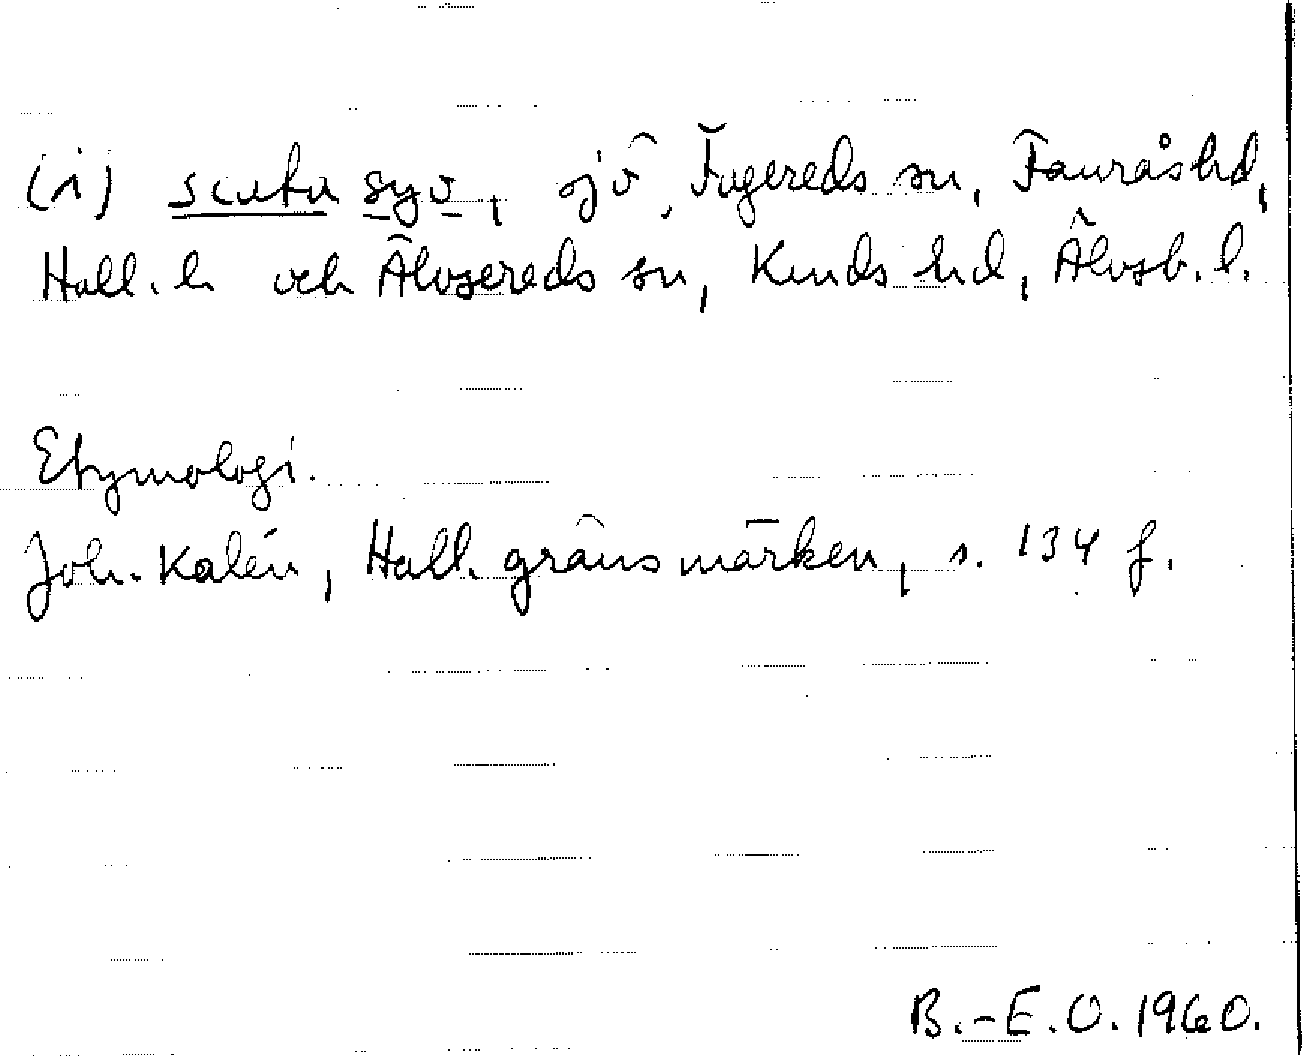 (i) scutu syo, sjö, Fagereds sn, Fauråshd,
Hall. l. och Älvsereds sn, Kinds hd, Älvsb. l.
Etymologi.
Joh. Kalén, Hall. gränsmärken, s. 134 f.
B.-E.O. 1960.